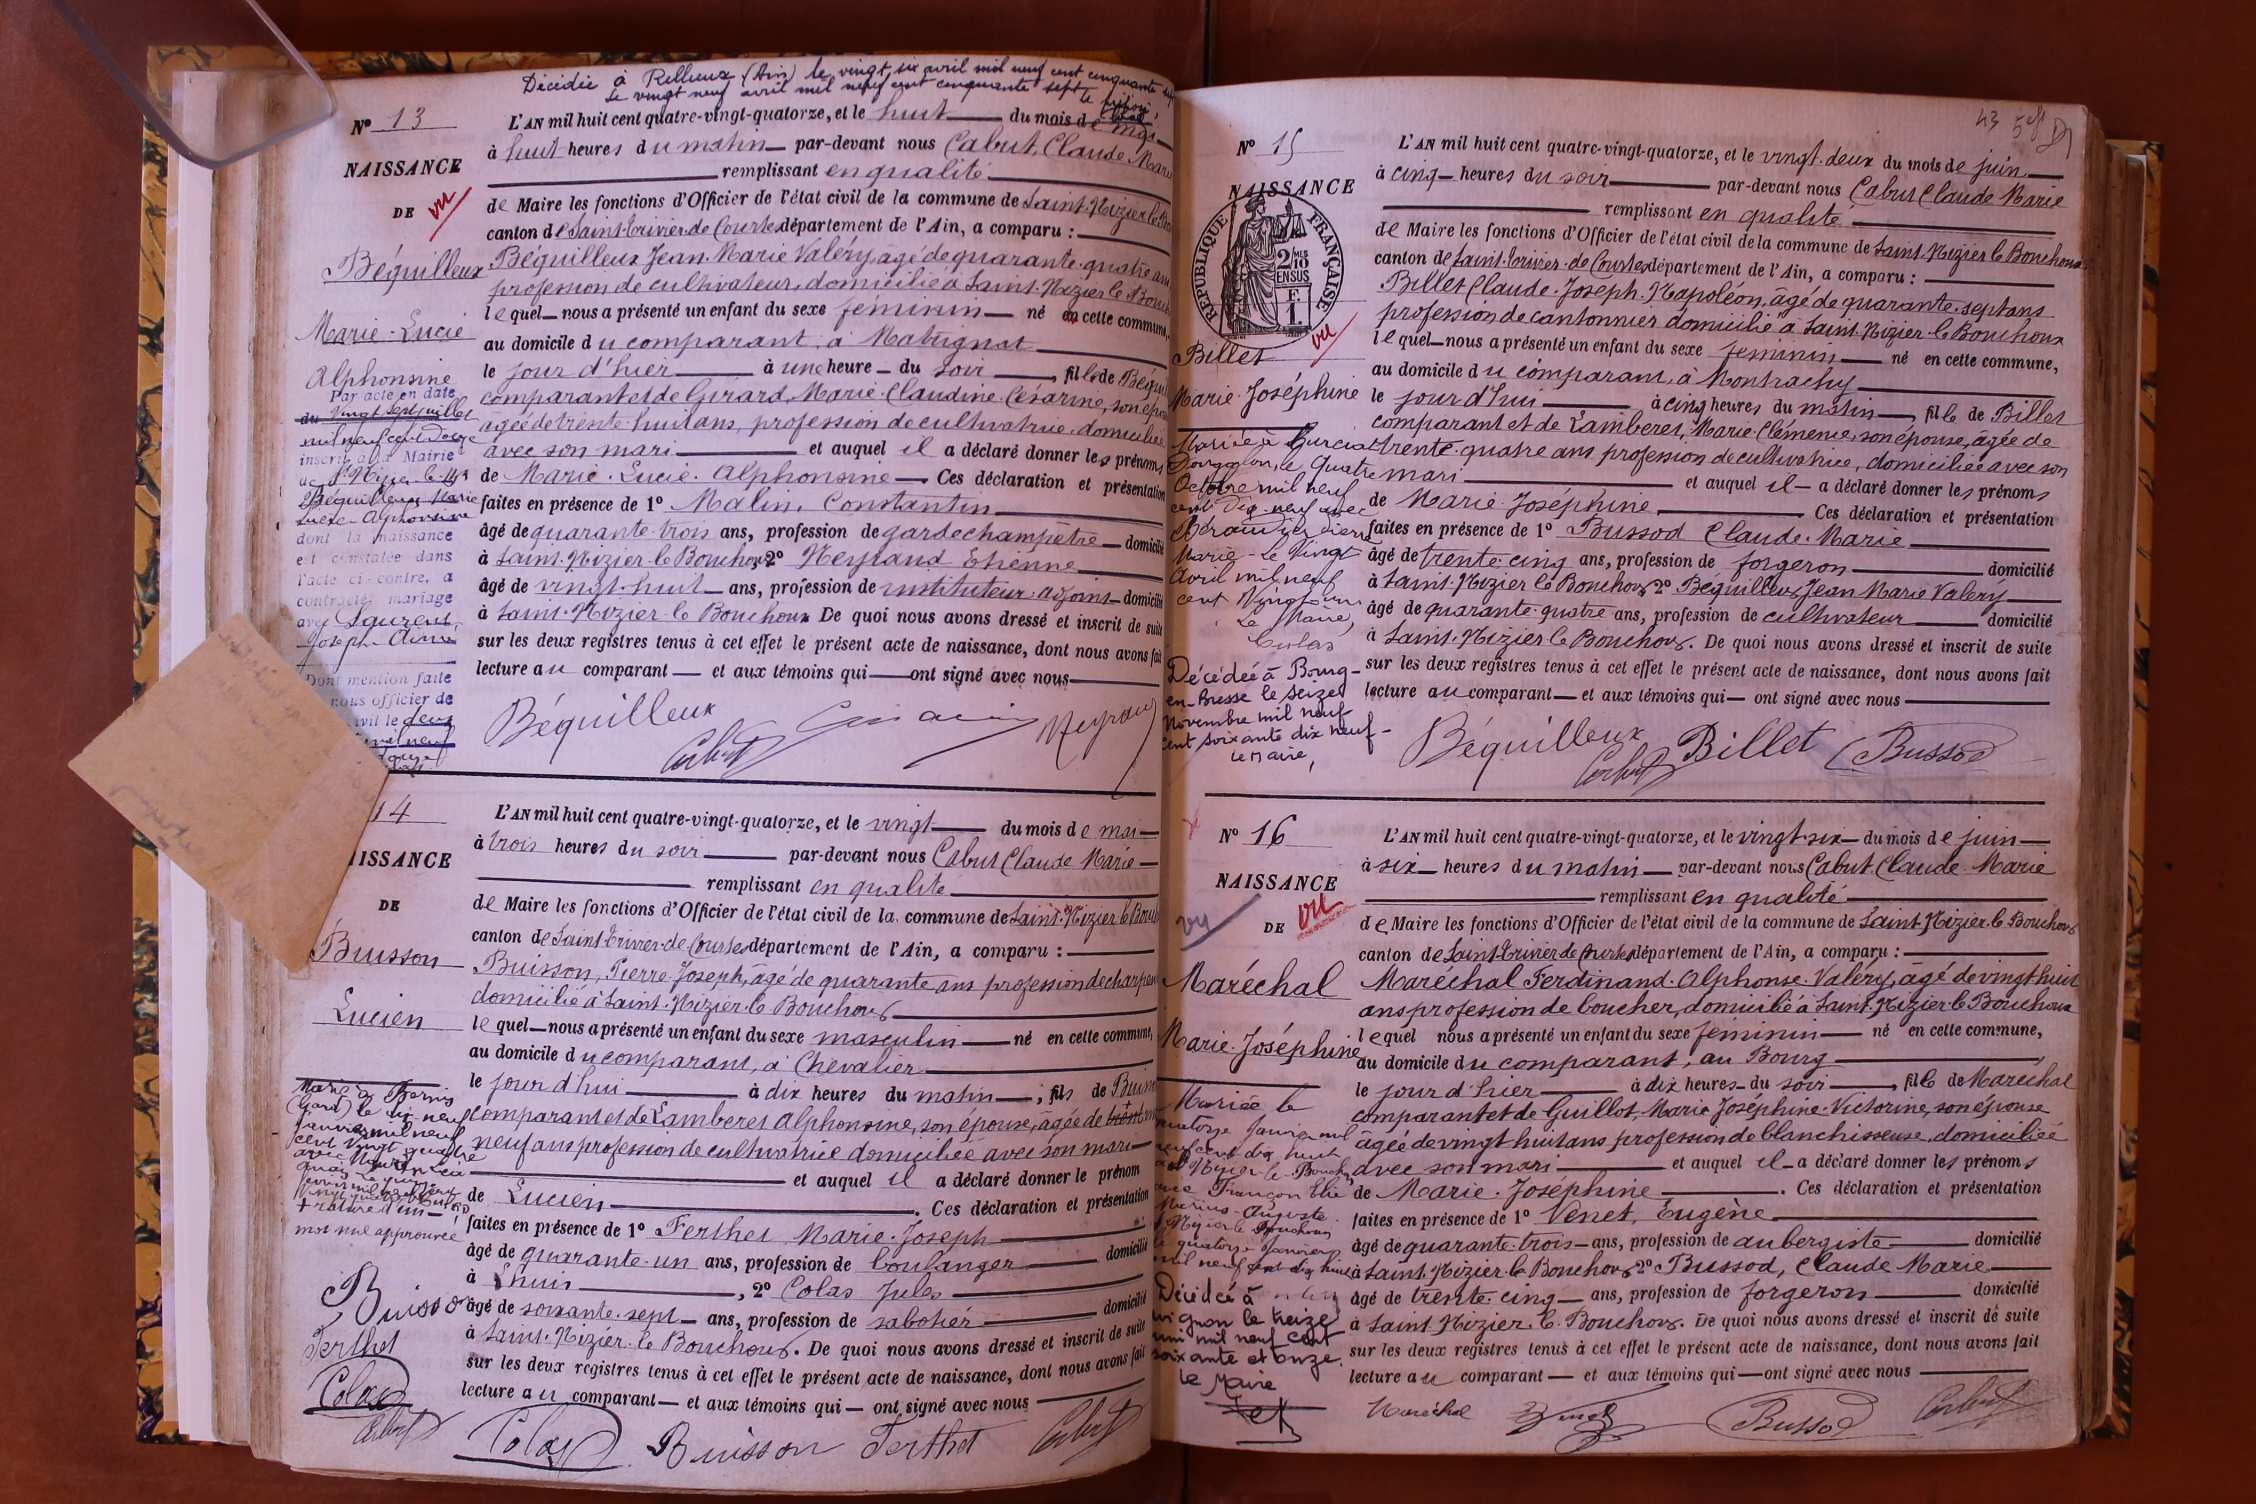 Décédée à Rillieux (Ain) le vingt six avril mil neuf cent cinquante sept
le vingt neuf avril mil neuf cent cinquante sept
N° 13
NAISSANCE
DE
vu
Béguilleux
Marie-Lucie
Alphonsine
Par acte en date
du vingt sept juillet
mil neuf cent douze
inscrit à la Mairie
de St Nizier le
Béguilleux Marie
Lucie-Alphonsine
dont la naissance
est constatée dans
l'acte ci-contre, a
contracté mariage
avec Laurent,
Joseph-Aimé
Dont mention faite
nous officier de
civil le deux
mil neuf
L'AN mil huit cent quatre-vingt-quatorze, et le huit du mois de mai
à huit heures du matin par-devant nous Cabut, Claude Marie
remplissant en qualité
de Maire les fonctions d'Officier de l'état civil de la commune de Saint-Nizier le Bou
canton de Saint-Trivier-de Courtes département de l'Ain, a comparu :
Béguilleux Jean-Marie Valéry, âgé de quarante-quatre ans
profession de cultivateur, domicilié à Saint-Nizier le Bouch
lequel nous a présenté un enfant du sexe féminin né en cette commune,
au domicile du comparant, à Matrignat
le jour d'hier à une heure du soir, fille de Bégui
comparant et de Girard, Marie-Claudine-Césarine, son épou
âgée de trente-huit ans, profession de cultivatrice, domiciliée
avec son mari et auquel il a déclaré donner les prénoms
de Marie-Lucie-Alphonsine Ces déclaration et présentation
faites en présence de 1° Malin, Constantin
âgé de quarante-trois ans, profession de garde champêtre domicilié
à Saint-Nizier-le Bouchoux 2° Neyraud Etienne
âgé de vingt-huit ans, profession de instituteur-adjoint domicilié
à Saint-Nizier-le Bouchoux De quoi nous avons dressé et inscrit de suite
sur les deux registres tenus à cet effet le présent acte de naissance, dont nous avons fait
lecture au comparant et aux témoins qui ont signé avec nous
Béguilleux
Cabut
Neyraud
14
NAISSANCE
DE
Buisson
Lucien
Marié à Bernis
(Gard) le dix neuf
janvier mil neuf
cent vingt quatre
avec
+ rature d'un
mot nul approuvée
Buisson
Ferthet
Colas
Cabut
L'AN mil huit cent quatre-vingt-quatorze, et le vingt du mois de mai
à trois heures du soir par-devant nous Cabut Claude Marie
remplissant en qualité
de Maire les fonctions d'Officier de l'état civil de la commune de Saint-Nizier le Bouc
canton de Saint-Trivier-de-Courtes département de l'Ain, a comparu :
Buisson, Pierre-Joseph, âgé de quarante ans profession de charpen
domicilié à Saint-Nizier-le Bouchoux
lequel nous a présenté un enfant du sexe masculin né en cette commune,
au domicile du comparant, à Chevalier
le jour d'hui à dix heures du matin ; fils de Buisson
comparant et de Lamberet Alphonsine, son épouse, âgée de trente
neuf ans profession de cultivatrice domiciliée avec son mari
et auquel il a déclaré donner le prénom
de Lucien. Ces déclaration et présentation
faites en présence de 1° Ferthet Marie-Joseph
âgé de quarante-un ans, profession de boulanger domicilié
à Lhuis, 2° Colas Jules
âgé de soixante-sept ans, profession de sabotier domicilié
à Saint-Nizier-le Bouchoux. De quoi nous avons dressé et inscrit de suite
sur les deux registres tenus à cet effet le présent acte de naissance, dont nous avons fait
lecture au comparant et aux témoins qui ont signé avec nous
Colas Buisson Ferthet Cabut
43
N° 15
NAISSANCE
RÉPUBLIQUE FRANÇAISE
2/10
EN SUS
vu
Billet
Marie-Joséphine
Mariée à Curciat
Dongalon, le Quatre
Octobre mil neuf
cent Dix-neuf avec
Pierre
Marie - Le Vingt
Avril mil neuf
cent Vingt un
Le Maire,
Colas
Décédée à Bourg-
en-Bresse le seize
Novembre mil neuf
cent soixante dix neuf-
Le Maire,
L'AN mil huit cent quatre-vingt-quatorze, et le vingt-deux du mois de juin
à cinq heures du soir par-devant nous Cabut Claude Marie
remplissant en qualité
de Maire les fonctions d'Officier de l'état civil de la commune de Saint-Nizier le Bouchoux
canton de Saint-Trivier-de Courtes département de l'Ain, a comparu :
Billet Claude-Joseph-Napoléon, âgé de quarante-sept ans
profession de cantonnier domicilié à Saint-Nizier-le Bouchoux
lequel nous a présenté un enfant du sexe féminin né en cette commune,
au domicile du comparant, à Montrachy
le jour d'hui à cinq heures du matin, fille de Billet
comparant et de Lamberet, Marie-Clémence, son épouse, âgée de
trente-quatre ans profession de cultivatrice, domiciliée avec son
mari et auquel il a déclaré donner les prénoms
de Marie-Joséphine Ces déclaration et présentation
faites en présence de 1° Bussod Claude-Marie
âgé de trente-cinq ans, profession de forgeron domicilié
à Saint-Nizier le Bouchoux 2° Béguilleux Jean Marie Valery
âgé de quarante-quatre ans, profession de cultivateur domicilié
à Saint-Nizier le Bouchoux. De quoi nous avons dressé et inscrit de suite
sur les deux registres tenus à cet effet le présent acte de naissance, dont nous avons fait
lecture au comparant et aux témoins qui ont signé avec nous
Béguilleux Cabut Billet Bussod
N° 16
NAISSANCE
DE
vu
vu
Maréchal
Marie-Joséphine
Mariée le
quatorze Janvier mil
neuf cent dix huit
à St Nizier-le-Bouchoux
avec Françon Elie
Marius-Auguste
St Nizier le Bouchoux
le quatorze Janvier
mil neuf cent dix huit
Décédée à
Avignon le treize
mil neuf cent
soixante et onze.
Le Maire
L'AN mil huit cent quatre-vingt-quatorze, et le vingt-six du mois de juin
à six heures du matin par-devant nous Cabut Claude-Marie
remplissant en qualité
de Maire les fonctions d'Officier de l'état civil de la commune de Saint-Nizier-le Bouchoux
canton de Saint-Trivier de Courtes département de l'Ain, a comparu :
Maréchal Ferdinand-Alphonse-Valéry, âgé de vingt-huit
ans profession de boucher, domicilié à Saint-Nizier le Bouchoux
lequel nous a présenté un enfant du sexe féminin né en cette commune,
au domicile du comparant, au Bourg
le jour d'hier à dix heures du soir, fille de Maréchal
comparant et de Guillot, Marie Joséphine-Victorine, son épouse
âgée de vingt huit ans profession de blanchisseuse, domiciliée
avec son mari et auquel il a déclaré donner les prénoms
de Marie-Joséphine. Ces déclaration et présentation
faites en présence de 1° Venet, Eugène
âgé de quarante-trois ans, profession de aubergiste domicilié
à Saint-Nizier-le Bouchoux 2° Bussod, Claude Marie
âgé de trente-cinq ans, profession de forgeron domicilié
à Saint-Nizier-le-Bouchoux. De quoi nous avons dressé et inscrit de suite
sur les deux registres tenus à cet effet le présent acte de naissance, dont nous avons fait
lecture au comparant et aux témoins qui ont signé avec nous
Maréchal Venet Bussod Cabut